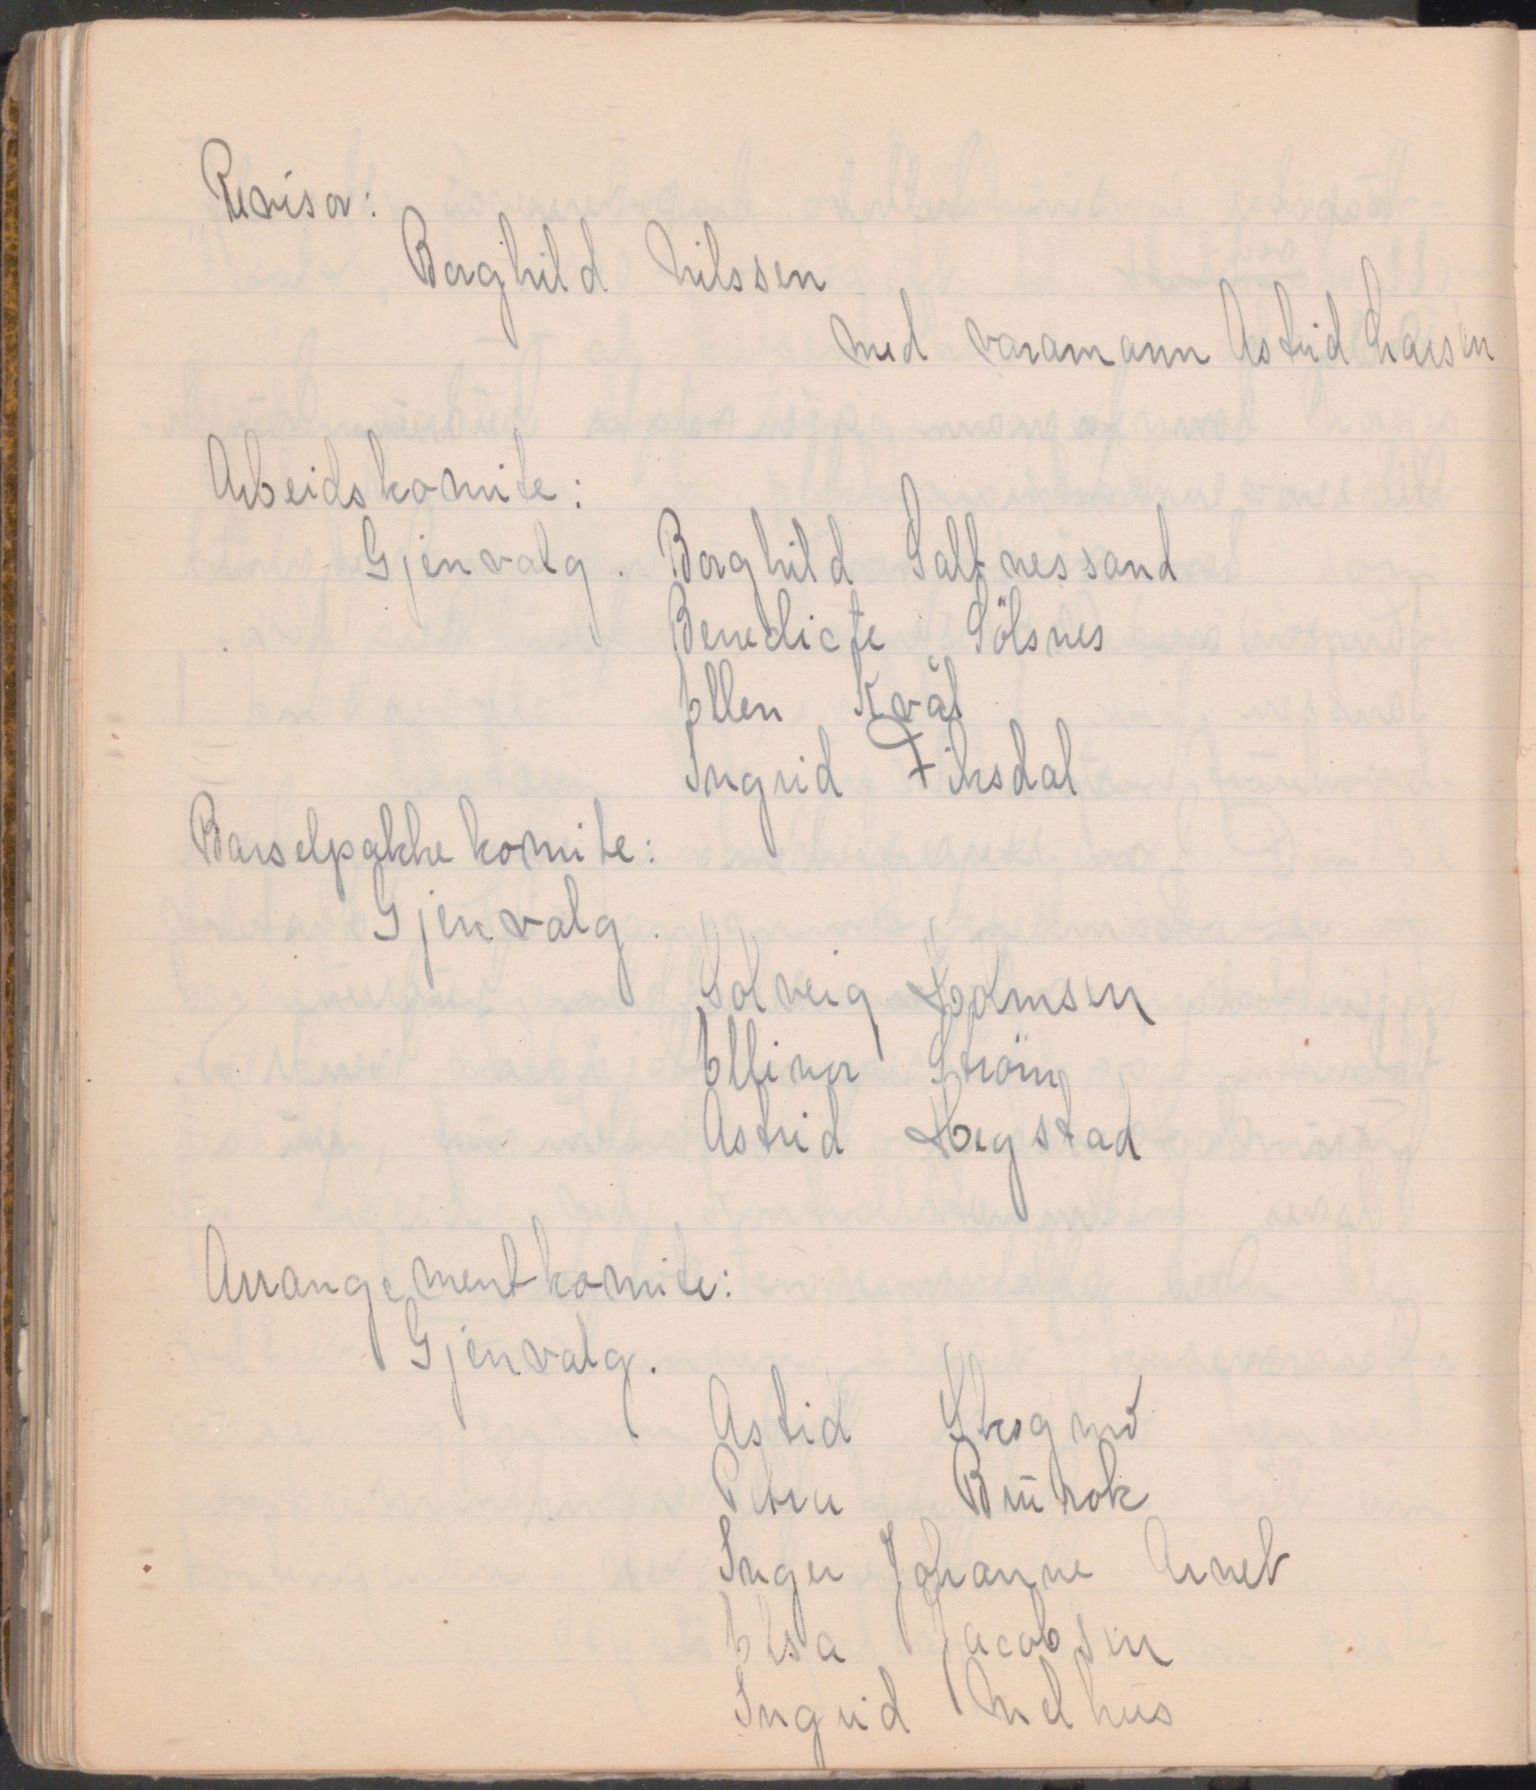 Revisor:
Borghild Nilssen
med varamann Astrid Larsen
Arbeidskomite:
Gjenvalg. Borghild Saltnessand
Benedicte Sölsnes
Ellen Kvål
Ingrid Fiksdal
Barselpakkekomite:
Gjenvalg.
Solveig Holmsen
Ellinor Ström
Astrid Hegstad
Arrangementkomite:
Gjenvalg.
Astrid Skogmo
Petra Burok
Inger Johanne Arnet
Elsa Jacobsen
Ingrid Melhus